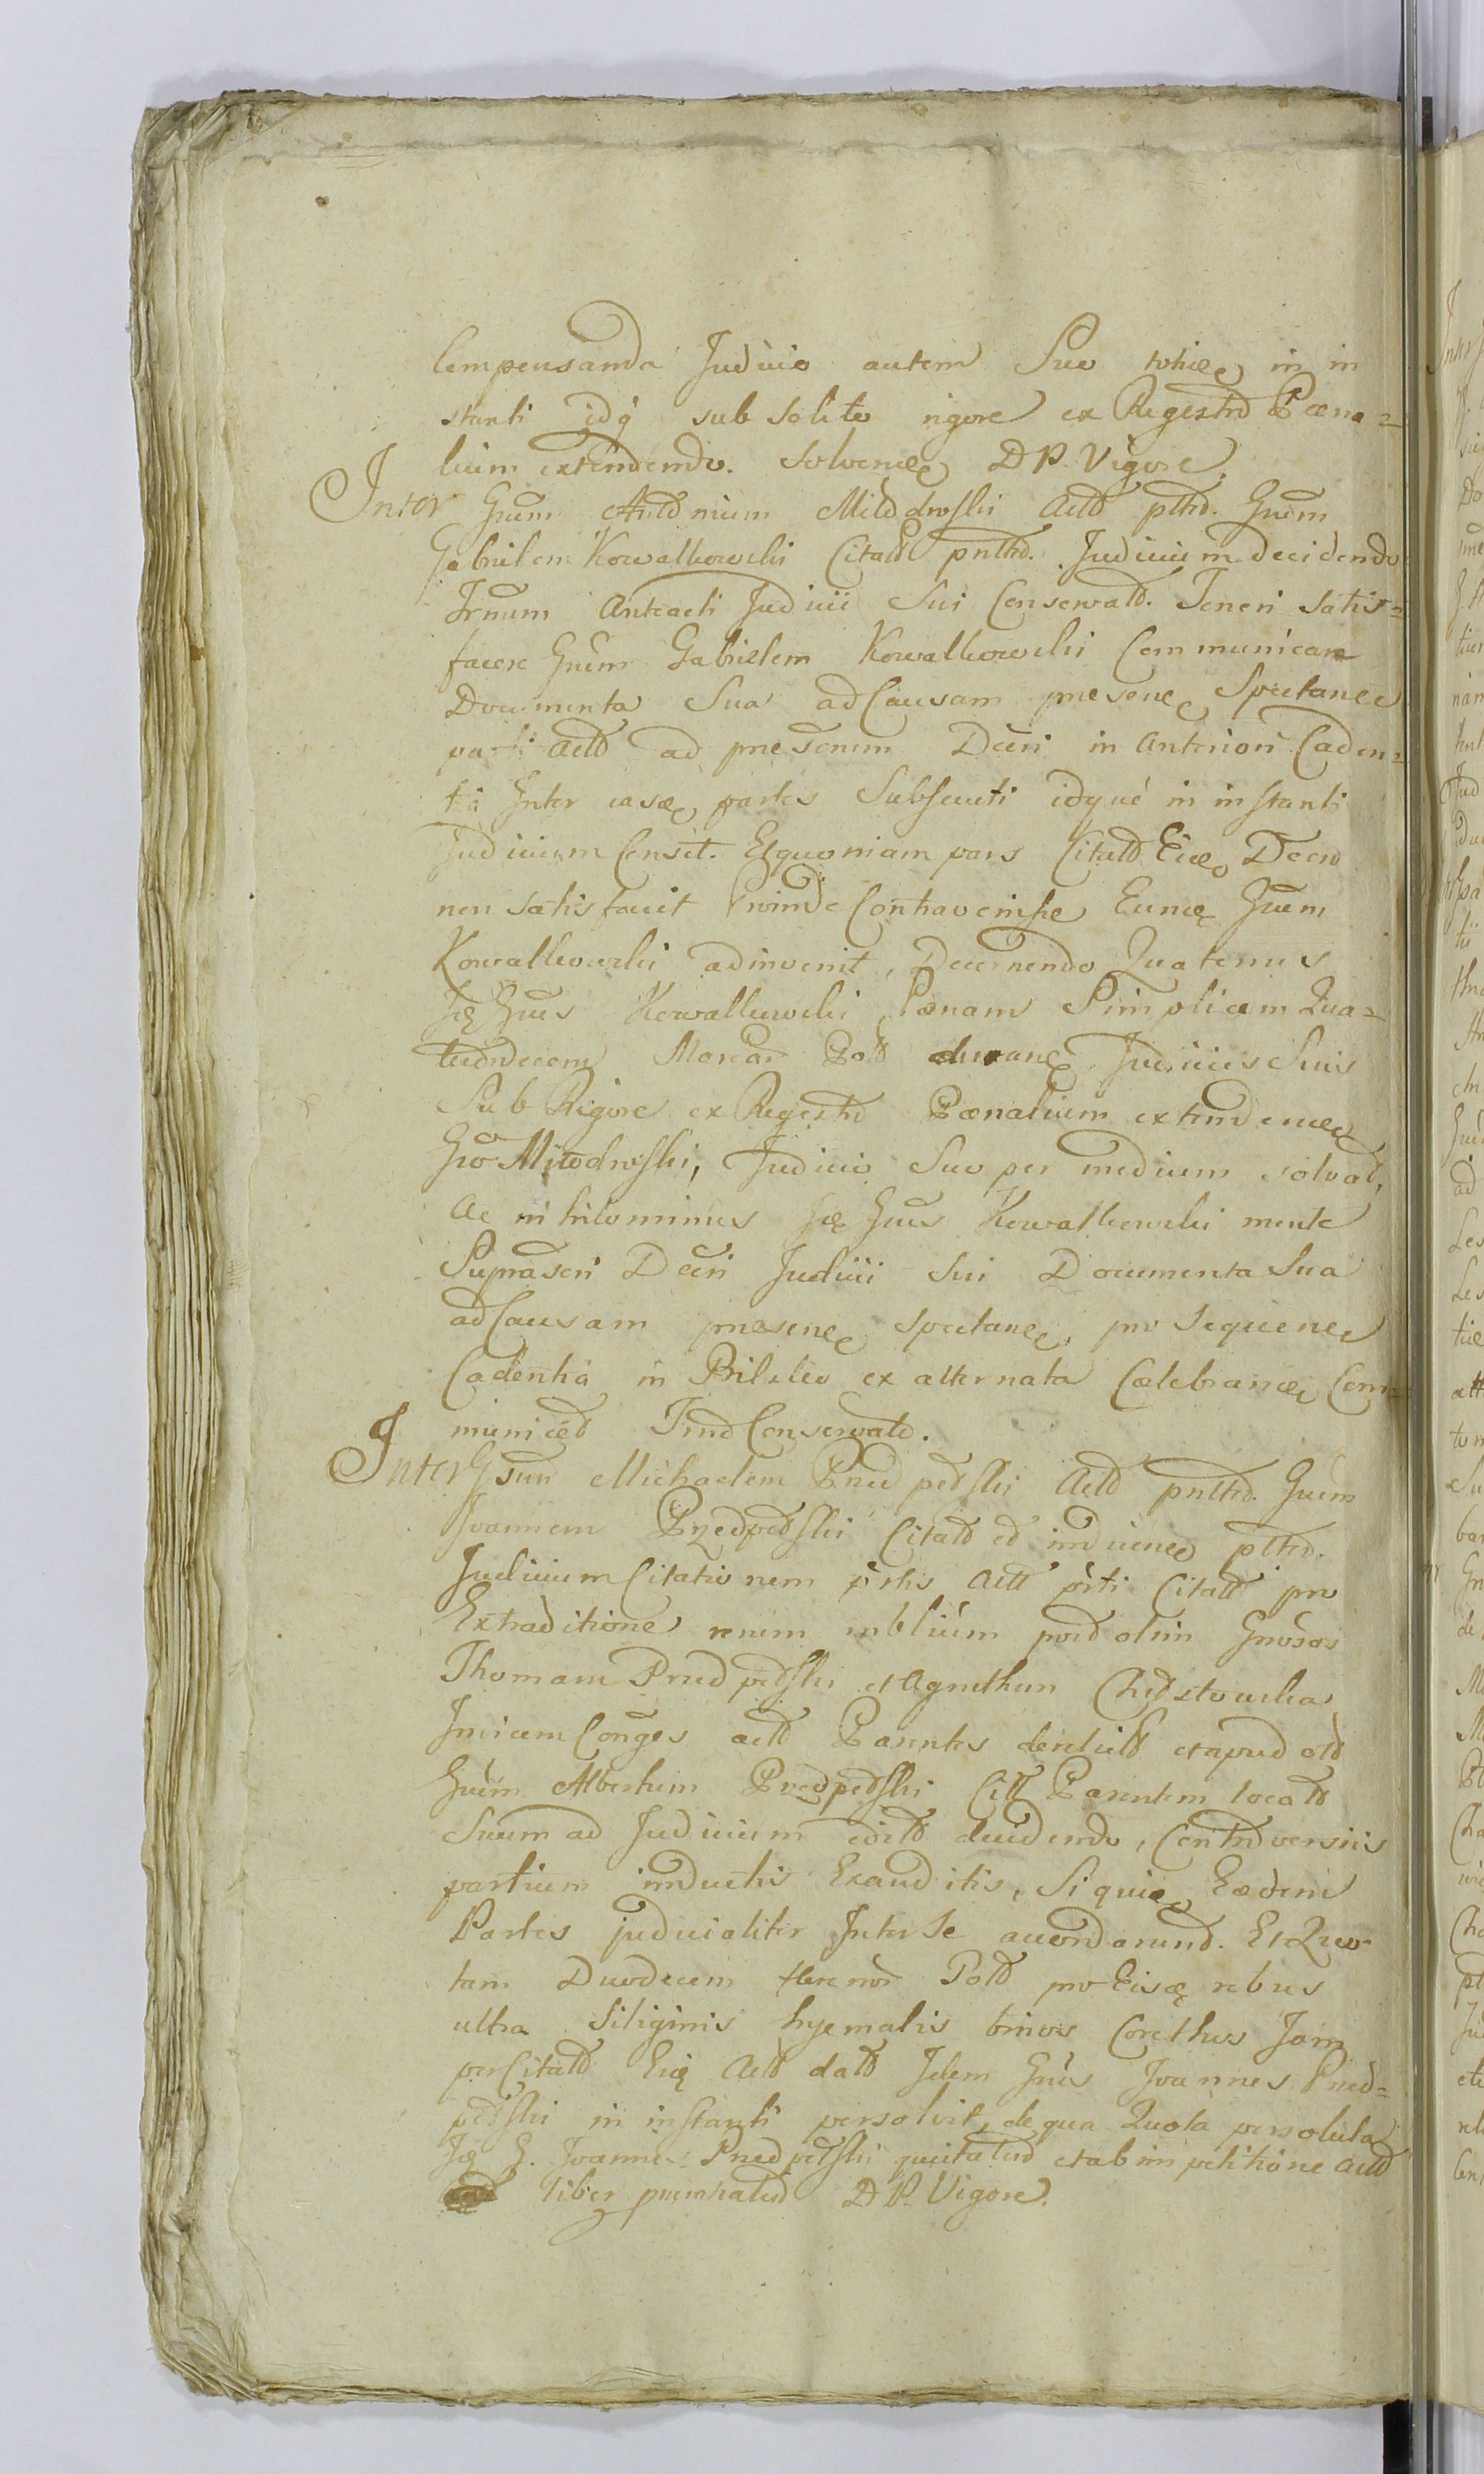 Compensanda Judicio autem Suo totidē in in
stanti idq́ sub solito rigore ex Regestro Pœna=
lium extendendo. Solvendę D P. Vigore.
Inter Gnum Antonium Młodowski Acto pltro. Gnum
Gabrielem Kowalkowski Citato pnltro. Judicium decidendo
Trnum Anteacti Judicii Sui Conservato. Teneri satis=
facere Gnum Gabrielem Kowalkowski Communicare
Documenta Sua ad Causam præsenę Spectanę
parti Acto ad præscrium Decri in Anteriori Caden=
tia Inter easdę partes Subsecuti idque in instanti
Judicium Censet. Et quoniam pars Citato Eidę Decro
non satisfecit proinde Contravenisse Eundę Gnum
Kowalkowski adinvenit, Decernendo Quatenus
Idę Gnus Kowalkowski Pœnam Simplicem Qua=
tuordecem Marcar Polo Judiciis Suis
Sub Rigore ex Regestro Pœnalium extendendę
Gno Młodowski, Judicio Suo per medium solvat,
Ac nihilominus Idę Gnus Kowalkowski mente
Suprascri Decri Judicii Sui Documenta Sua
ad Causam præsenę spectanę, pro sequenę
Cadentia in Bilsko ex alternata Cœlebrandę Com=
municet Trno Conservato.
Inter Gsum Michaelem Przedpełski Acto pnltro. Gnum
Joannem Przedpełski Citato et inducendo pltro.
Judicium Citationem prtis Acto prti Citato pro
Extraditione rerum mblium pord olim Gnosos
Thomam Przedpełski et Agnethem Chrzstowska
Invicem Conges acto Parentes derelicto et apud olo
Gnum Albertum Przedpełski Citt Parentem locato
Suum ad Judicium edito decidendo, Controversiis
partium inductis Exauditis, Siquidę Eædem
Partes judicialiter Inter Se accordarund. Et Quo
tam Duodecem florenor Polo pro Eisdę rebus
ultra Siliginis hyemalis binos Corethos Jam
per Citato Eidę Acto dato Idem Gnus Joannes Przed=
pełski in instanti persolvit, de qua Quota persoluta
Idę G. Joannes Przedpełski quietatur et ab impetitione Acto
liber pnunciatur D P. Vigore.